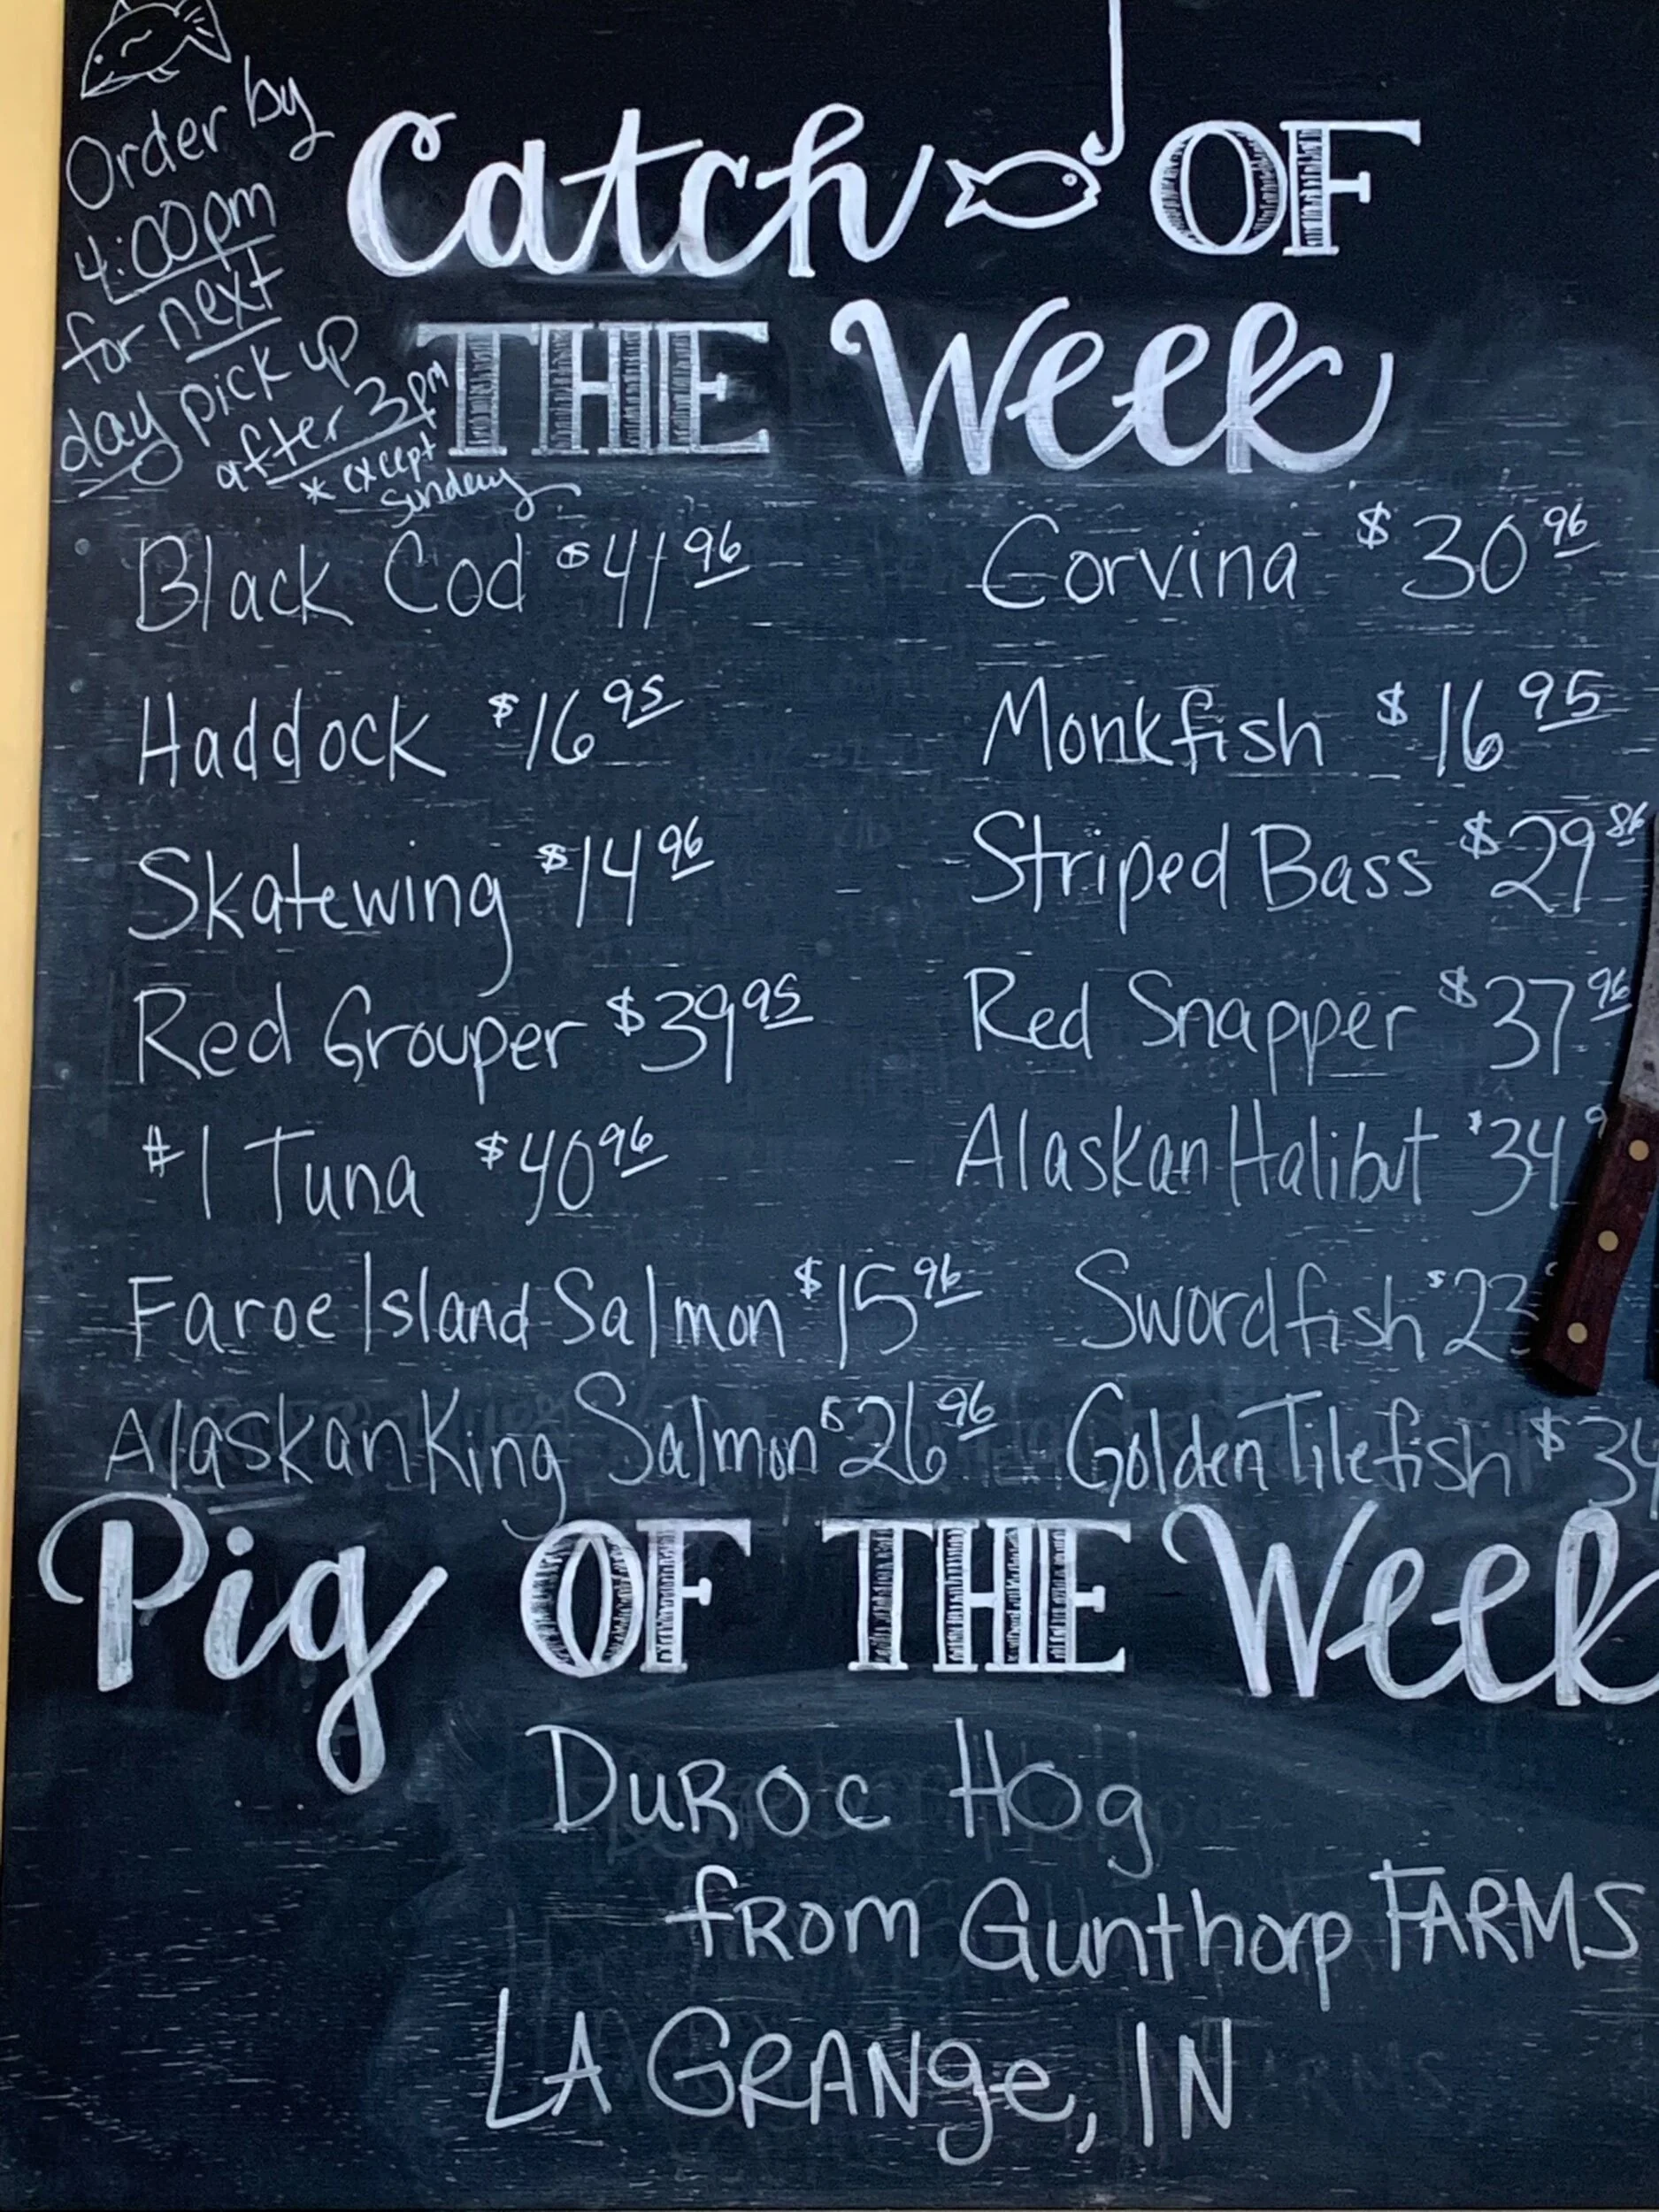 Order by
4:00pm
for next
day pick up
after 3pm
* except
sunday
Catch OF
THE Week
Black Cod $41 96
Haddock $16 95
Skatewing $14 96
Red Grouper $39 95
#1 Tuna $40 96
Faroe Island Salmon $15 96
Alaskan King Salmon $26 96
Corvina $30 96
Monkfish $16 95
Striped Bass $29 86
Red Snapper $37 96
Alaskan Halibut $34 9
Swordfish $23
Golden Tilefish $34
Pig OF THE Week
DuRoc Hog
fROm Gunthorp FARMS
LA GRANge, IN